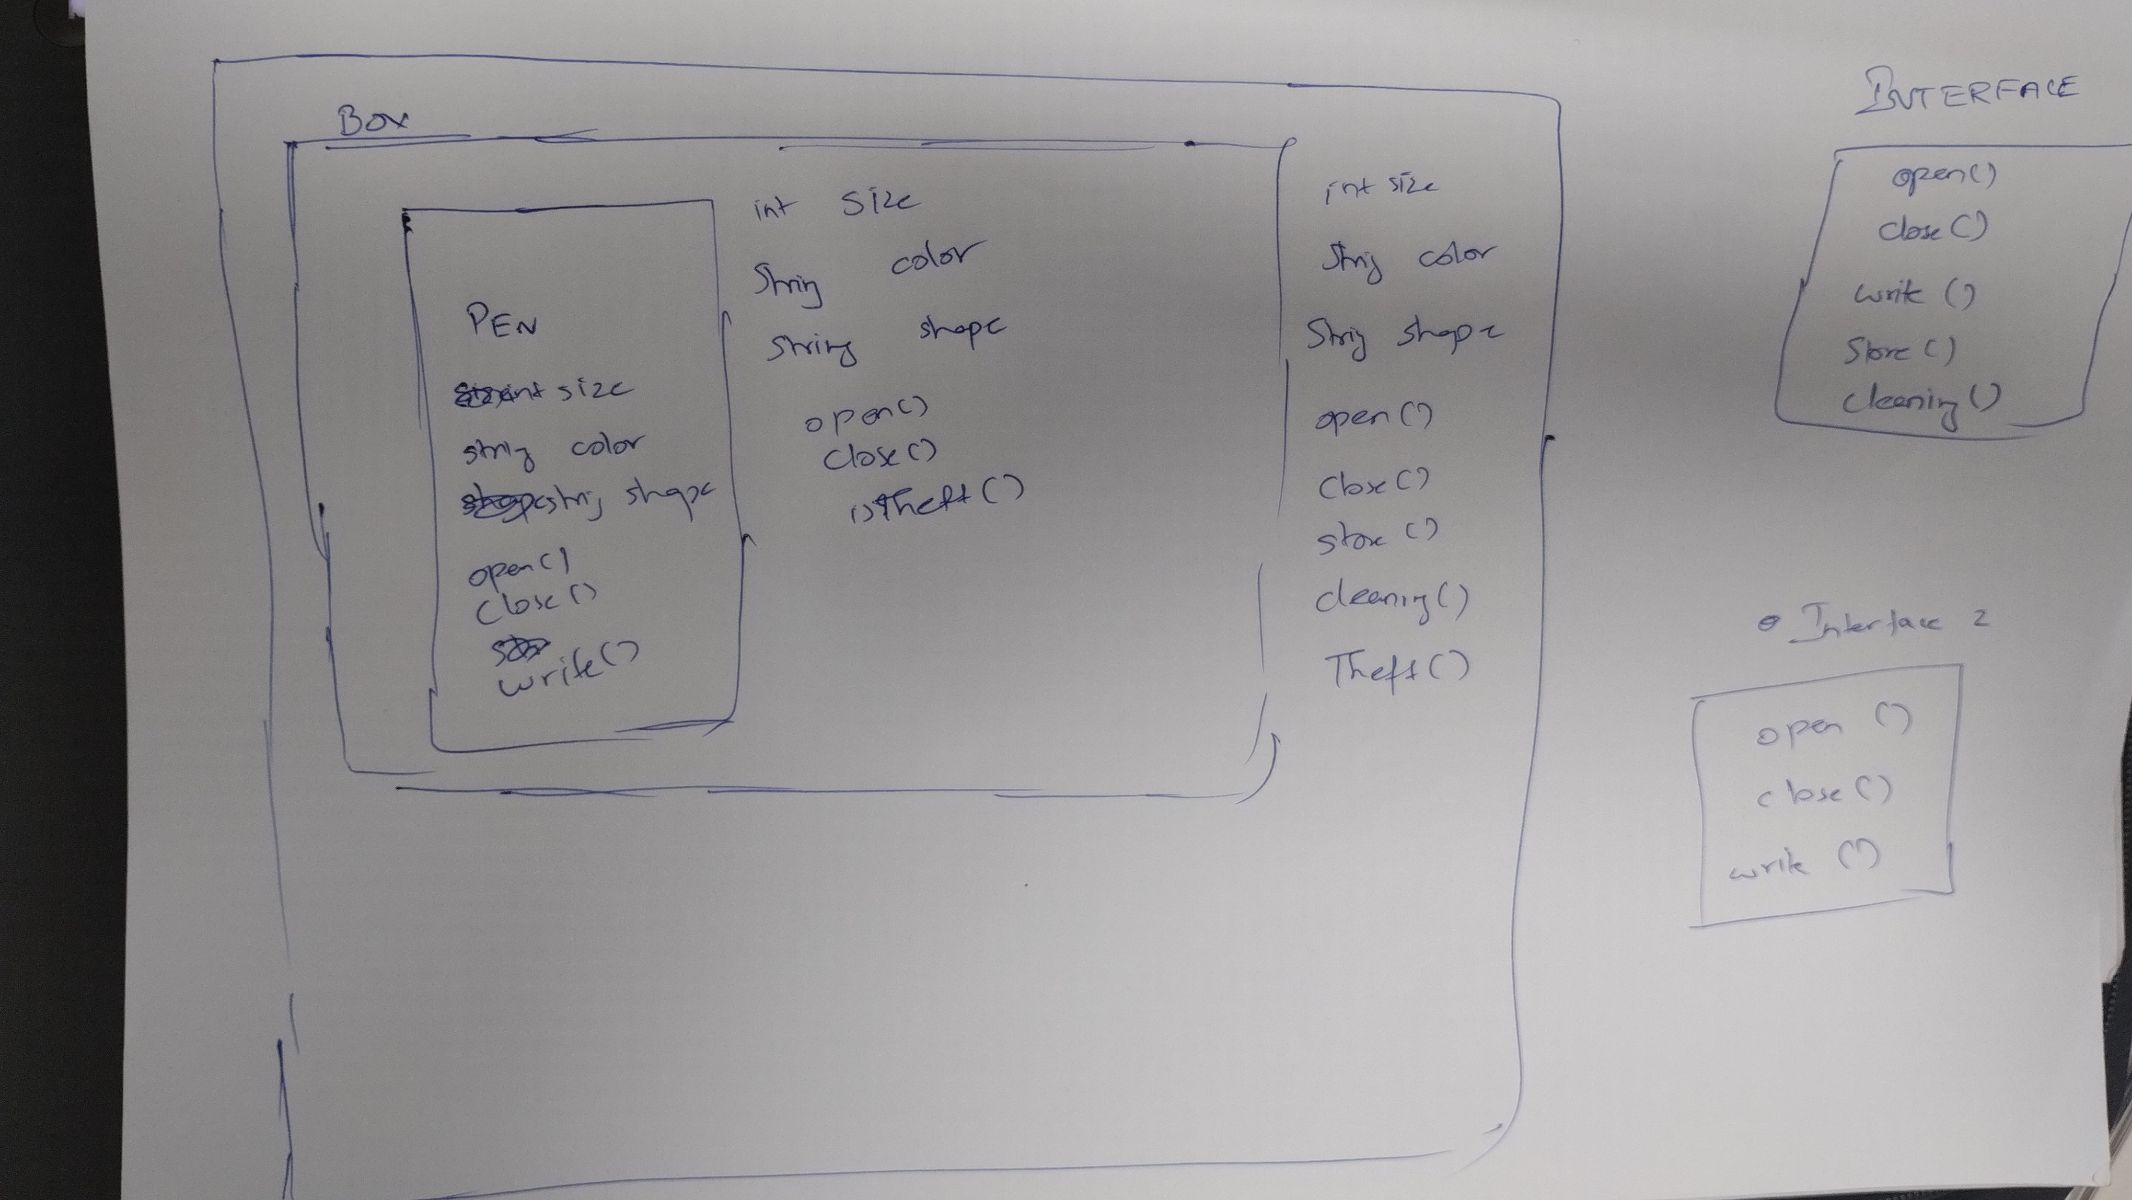 Box
PEN
int size
string color
string shape
open()
close()
write()
int size
String color
String shape
open()
close()
isTheft()
int size
String color
String shape
open()
close()
store()
cleaning()
Theft()
INTERFACE
open()
close()
write()
Store()
cleaning()
Interface 2
open()
close()
write()